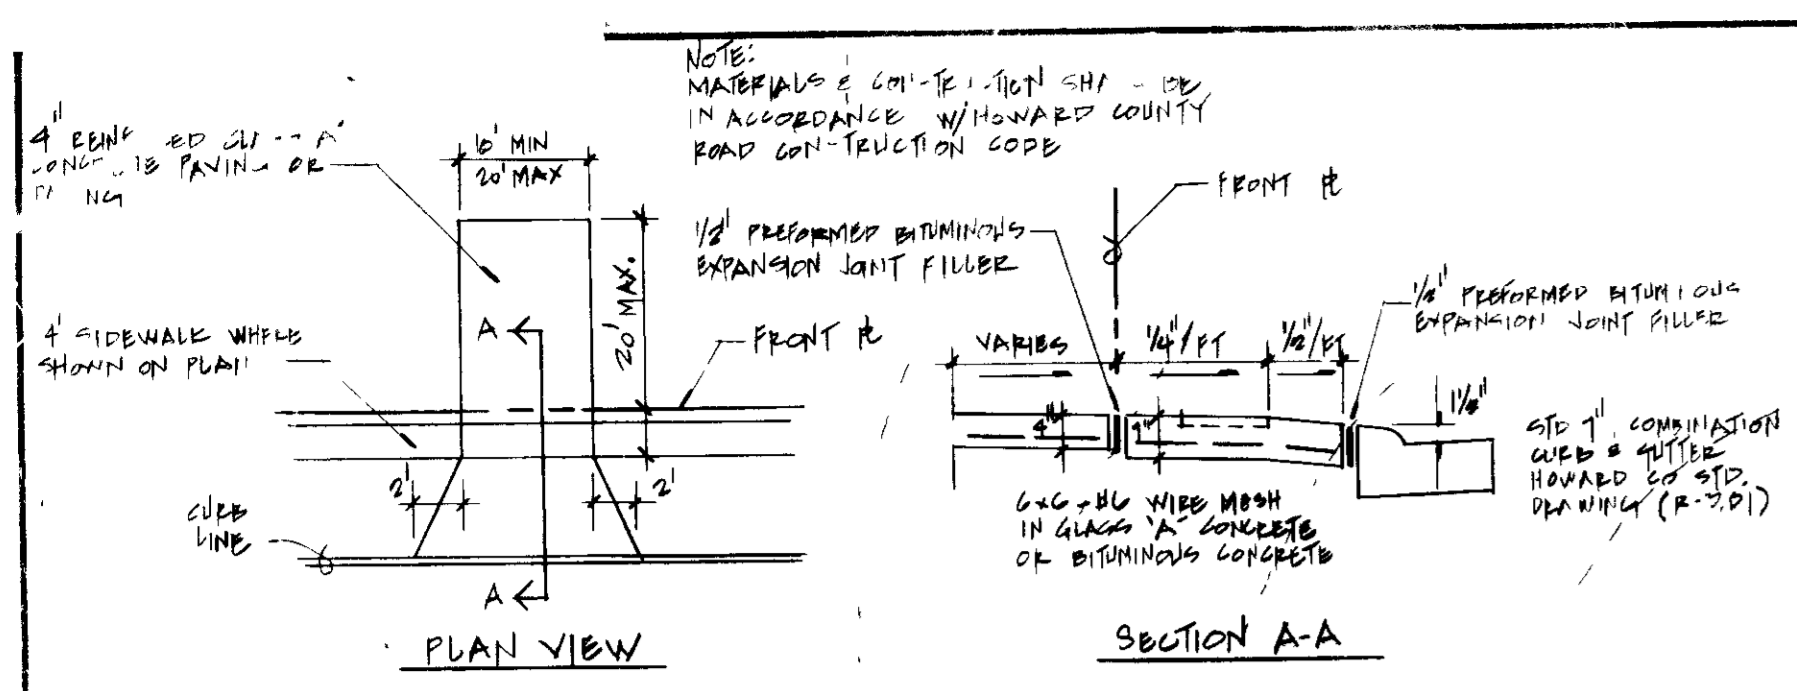 NOTE:
MATERIALS &
IN ACCORDANCE W/HOWARD COUNTY
ROAD CON-TRUCTION CODE
4"
PAVIN OR
10' MIN
20' MAX
20' MAX.
4' SIDEWALK WHERE
SHOWN ON PLAN
A
FRONT ₧
2'
2'
CURB
LINE
A
PLAN VIEW
FRONT ₧
1/2" PREFORMED BITUMINOUS
EXPANSION JOINT FILLER
1/2" PREFORMED BITUMI OUS
EXPANSION JOINT FILLER
VARIES
1/4"/FT
1/2"/FT
4"
4"
1 1/2"
STD 7" COMBINATION
CURB & GUTTER
HOWARD CO STD.
DRAWING
6x6 - #6 WIRE MESH
IN CLASS 'A' CONCRETE
OR BITUMINOUS CONCRETE
SECTION A-A